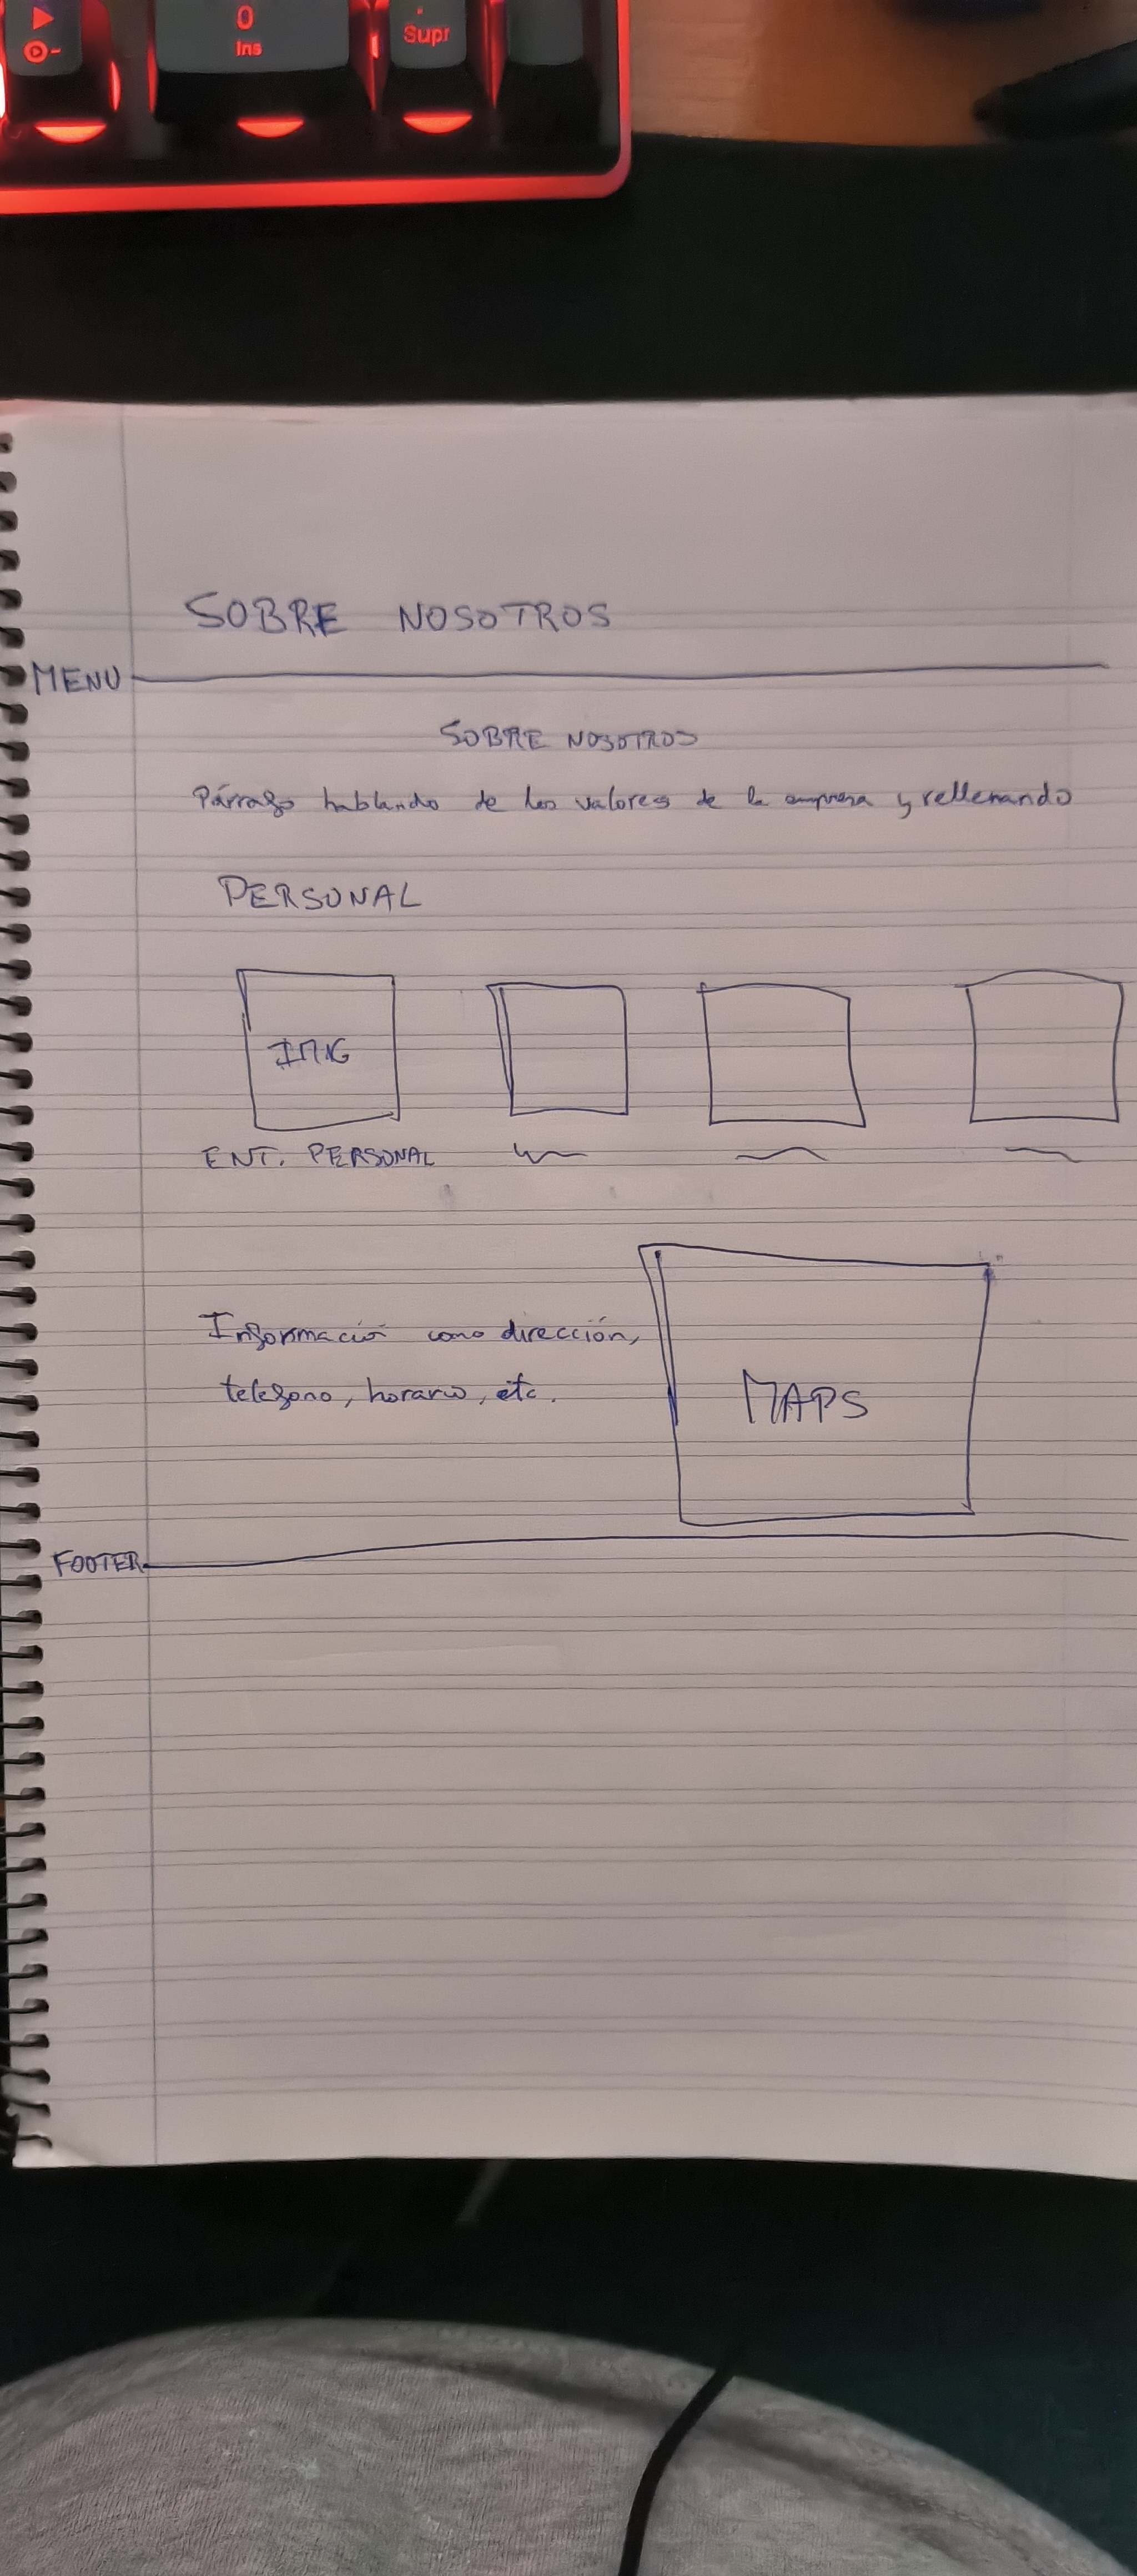 0
Ins
.
Supr
SOBRE NOSOTROS
MENU
SOBRE NOSOTROS
Párrafo hablando de los valores de la empresa y rellenando
PERSONAL
IMG
ENT. PERSONAL
Información como dirección,
telefono, horario, etc.
MAPS
FOOTER